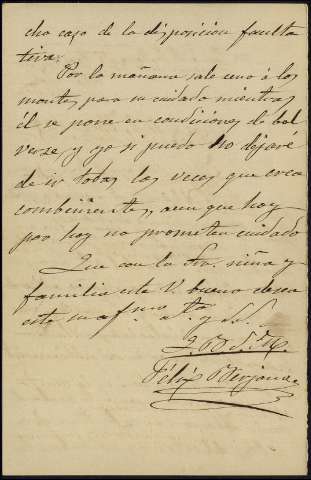 cho caso de la disposicion faculta
tiva.
Por la mañana sale uno á los
montes para su cuidado mientras
él se pone en condiciones de bol
verse y yo si puedo no dejaré
de ir todas las veces que crea
combiniente, aun que hoy
por hoy no prometen cuidado
Que con la Sra. niña y
familia este V. bueno desea
este su af.mo a.º y S.S.
Q. B. S. M.
Félix